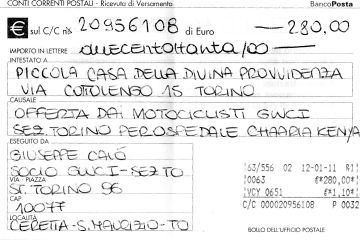 CONTI CORRENTI POSTALI - Ricevuta di Versamento BancoPosta
€ sul C/C n° 20956108 di Euro — 280,00
IMPORTO IN LETTERE duecentottanta/00
INTESTATO A
PICCOLA CASA DELLA DIVINA PROVVIDENZA
VIA COTOLENGO 15 TORINO
CAUSALE
OFFERTA DAI MOTOCICLISTI GWCI
SEZ. TORINO PER OSPEDALE CHAARIA KENYA
ESEGUITO DA
GIUSEPPE CALÓ
SOCIO GWCI-SEZ TO
VIA - PIAZZA
ST. TORINO 96
CAP
10077
LOCALITÀ
CERETTA-S.MAURIZIO-TO
63/556 02 12-01-11 R1
0063 €*280,00*
VCY 0651 €*1,10*
C/C 000020956108 P 0032
BOLLO DELL'UFFICIO POSTALE